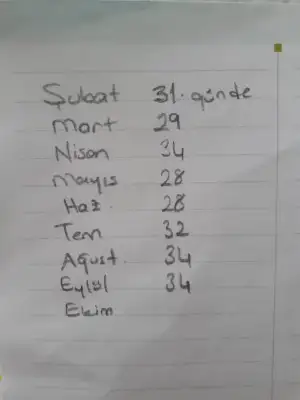 Şubat 31. günde
Mart 29
Nisan 34
Mayıs 28
Haz. 28
Tem 32
Ağust. 34
Eylül 34
Ekim